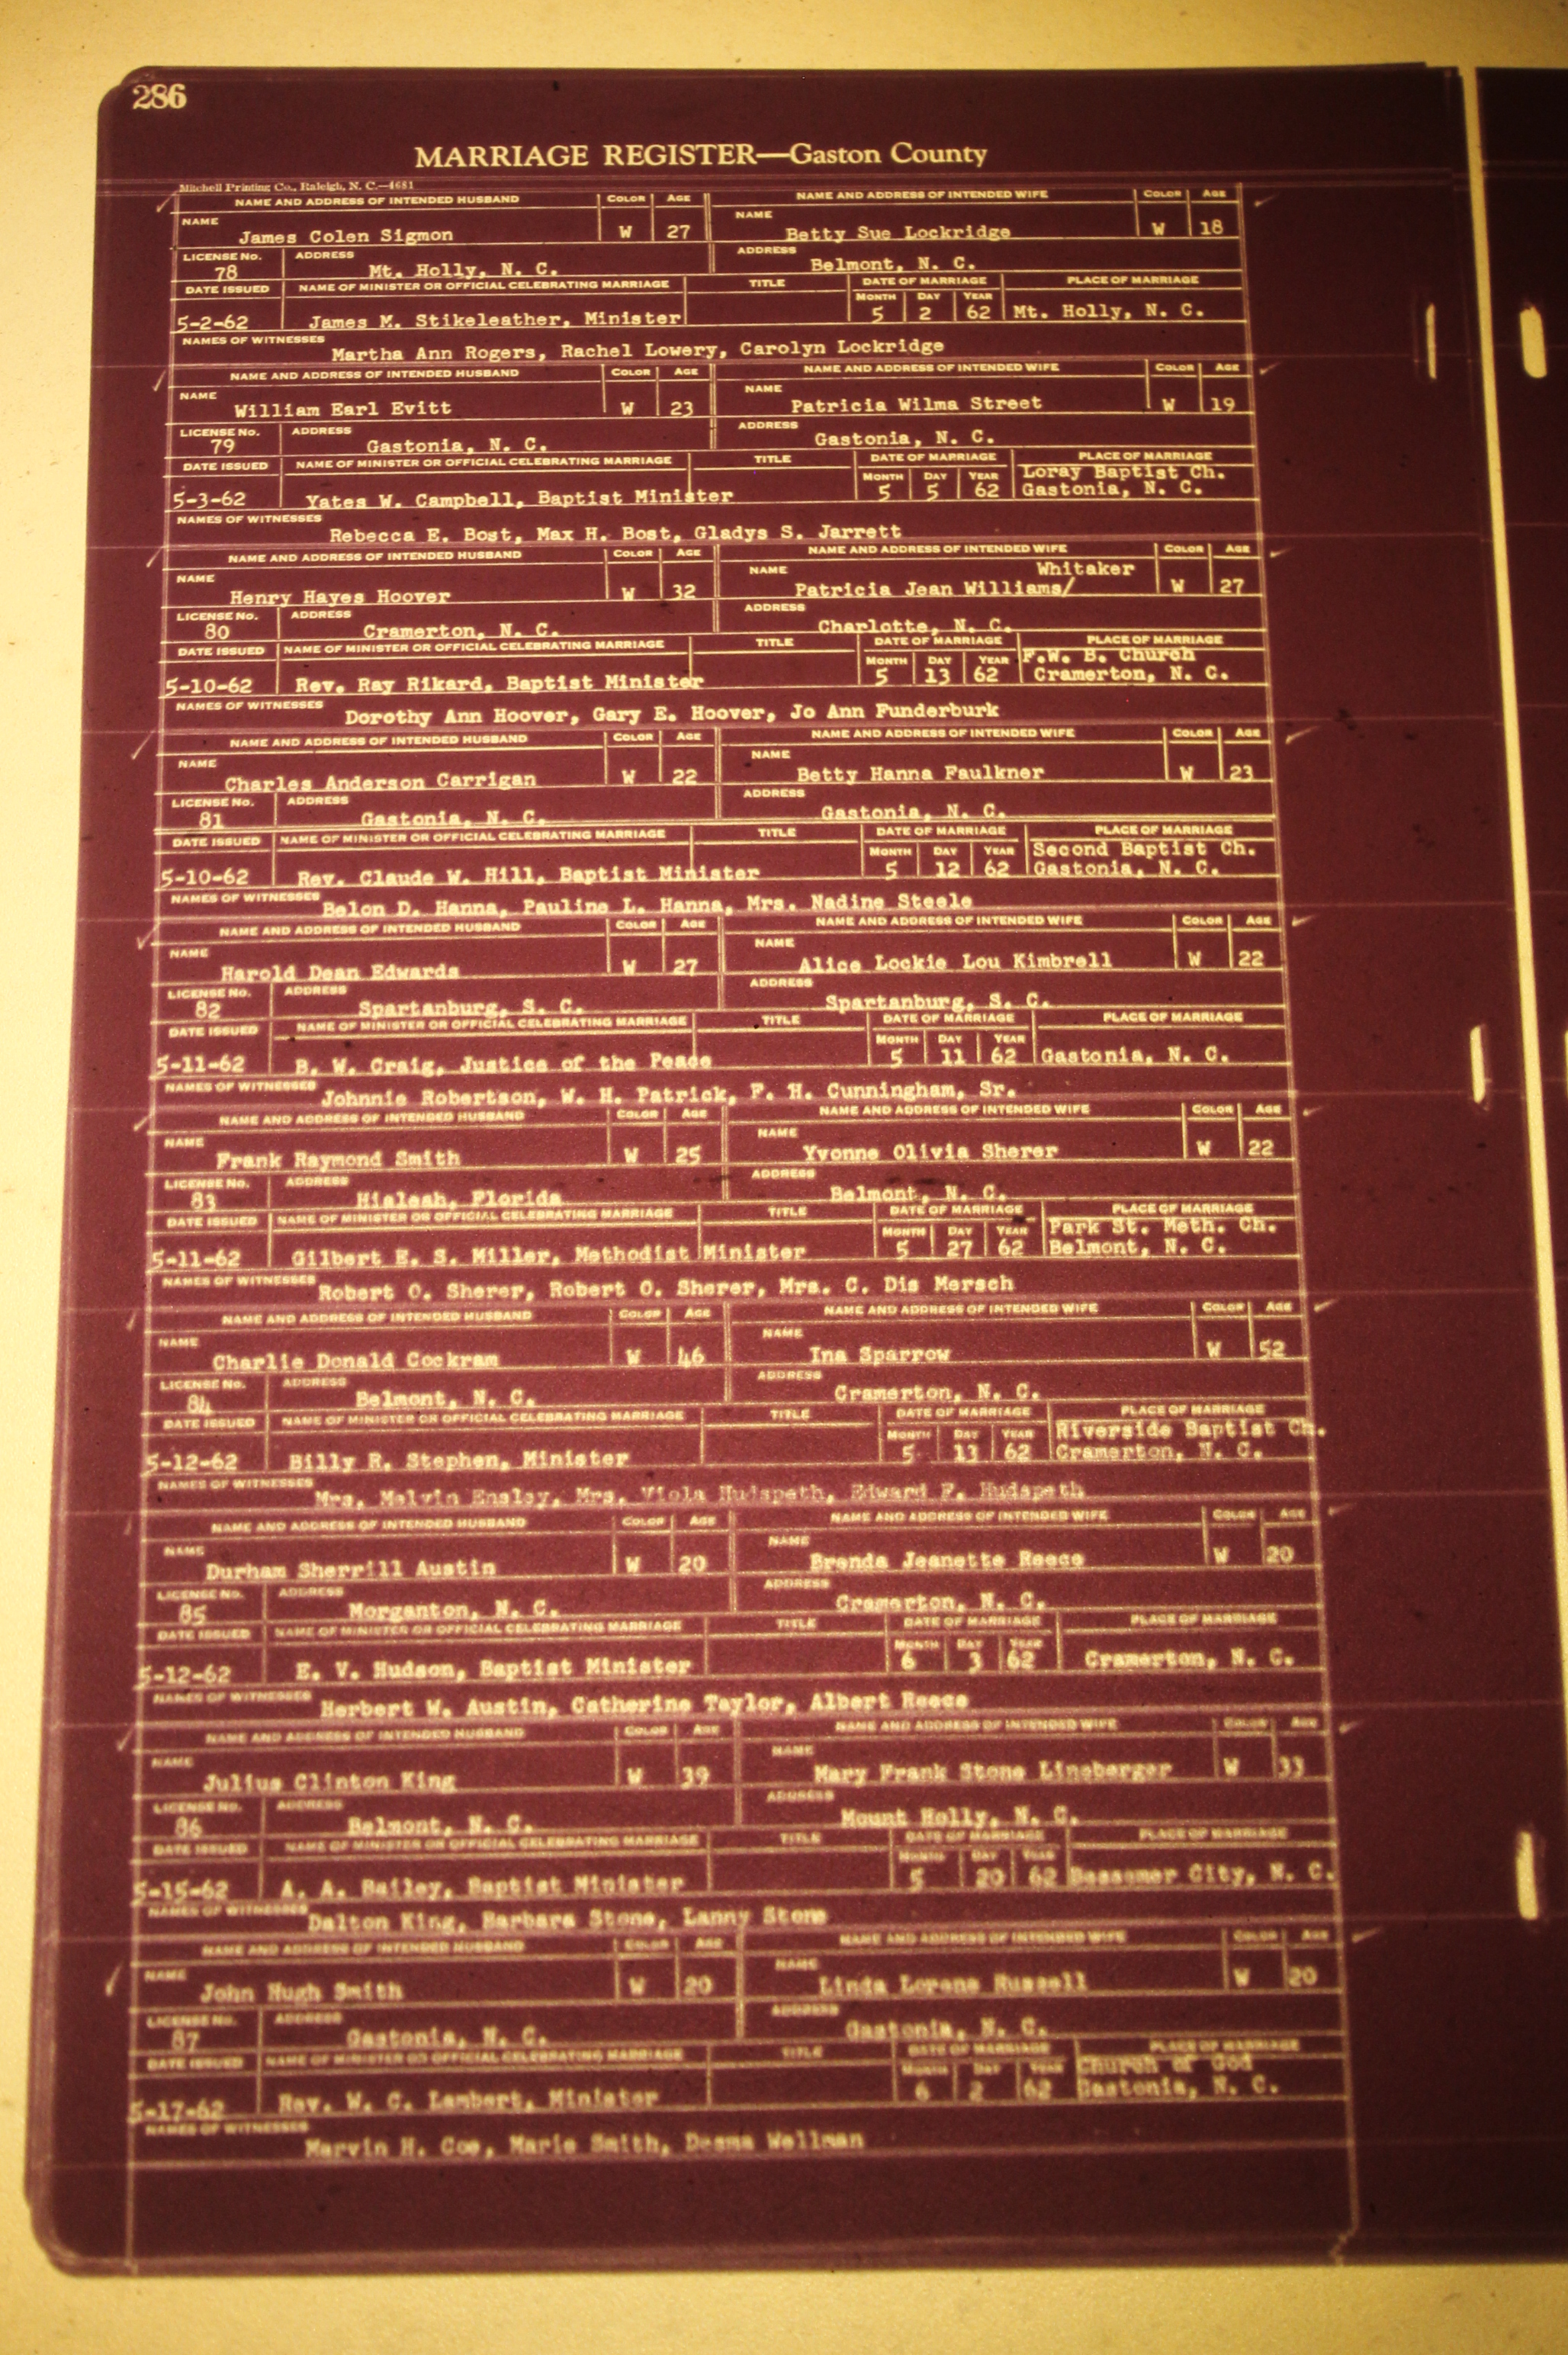 286
MARRIAGE REGISTER—Gaston County
Mitchell Printing Co., Raleigh, N. C.—4681
NAME AND ADDRESS OF INTENDED HUSBAND COLOR AGE NAME AND ADDRESS OF INTENDED WIFE COLOR AGE
NAME James Colen Sigmon W 27 NAME Betty Sue Lockridge W 18
LICENSE No. 78 ADDRESS Mt. Holly, N. C. ADDRESS Belmont, N. C.
DATE ISSUED NAME OF MINISTER OR OFFICIAL CELEBRATING MARRIAGE TITLE DATE OF MARRIAGE PLACE OF MARRIAGE
MONTH DAY YEAR
5-2-62 James M. Stikeleather, Minister 5 2 62 Mt. Holly, N. C.
NAMES OF WITNESSES Martha Ann Rogers, Rachel Lowery, Carolyn Lockridge
NAME AND ADDRESS OF INTENDED HUSBAND COLOR AGE NAME AND ADDRESS OF INTENDED WIFE COLOR AGE
NAME William Earl Evitt W 23 NAME Patricia Wilma Street W 19
LICENSE No. 79 ADDRESS Gastonia, N. C. ADDRESS Gastonia, N. C.
DATE ISSUED NAME OF MINISTER OR OFFICIAL CELEBRATING MARRIAGE TITLE DATE OF MARRIAGE PLACE OF MARRIAGE
MONTH DAY YEAR Loray Baptist Ch.
5-3-62 Yates W. Campbell, Baptist Minister 5 5 62 Gastonia, N. C.
NAMES OF WITNESSES Rebecca E. Bost, Max H. Bost, Gladys S. Jarrett
NAME AND ADDRESS OF INTENDED HUSBAND COLOR AGE NAME AND ADDRESS OF INTENDED WIFE COLOR AGE
Whitaker
NAME Henry Hayes Hoover W 32 NAME Patricia Jean Williams/ W 27
LICENSE No. 80 ADDRESS Cramerton, N. C. ADDRESS Charlotte, N. C.
DATE ISSUED NAME OF MINISTER OR OFFICIAL CELEBRATING MARRIAGE TITLE DATE OF MARRIAGE PLACE OF MARRIAGE
MONTH DAY YEAR F.W. B. Church
5-10-62 Rev. Ray Rikard, Baptist Minister 5 13 62 Cramerton, N. C.
NAMES OF WITNESSES Dorothy Ann Hoover, Gary E. Hoover, Jo Ann Funderburk
NAME AND ADDRESS OF INTENDED HUSBAND COLOR AGE NAME AND ADDRESS OF INTENDED WIFE COLOR AGE
NAME Charles Anderson Carrigan W 22 NAME Betty Hanna Faulkner W 23
LICENSE No. 81 ADDRESS Gastonia, N. C. ADDRESS Gastonia, N. C.
DATE ISSUED NAME OF MINISTER OR OFFICIAL CELEBRATING MARRIAGE TITLE DATE OF MARRIAGE PLACE OF MARRIAGE
MONTH DAY YEAR Second Baptist Ch.
5-10-62 Rev. Claude W. Hill, Baptist Minister 5 12 62 Gastonia, N. C.
NAMES OF WITNESSES Belon D. Hanna, Pauline L. Hanna, Mrs. Nadine Steele
NAME AND ADDRESS OF INTENDED HUSBAND COLOR AGE NAME AND ADDRESS OF INTENDED WIFE COLOR AGE
NAME Harold Dean Edwards W 27 NAME Alice Lockie Lou Kimbrell W 22
LICENSE No. 82 ADDRESS Spartanburg, S. C. ADDRESS Spartanburg, S. C.
DATE ISSUED NAME OF MINISTER OR OFFICIAL CELEBRATING MARRIAGE TITLE DATE OF MARRIAGE PLACE OF MARRIAGE
MONTH DAY YEAR
5-11-62 B. W. Craig, Justice of the Peace 5 11 62 Gastonia, N. C.
NAMES OF WITNESSES Johnnie Robertson, W. H. Patrick, F. H. Cunningham, Sr.
NAME AND ADDRESS OF INTENDED HUSBAND COLOR AGE NAME AND ADDRESS OF INTENDED WIFE COLOR AGE
NAME Frank Raymond Smith W 25 NAME Yvonne Olivia Sherer W 22
LICENSE No. 83 ADDRESS Hialeah, Florida ADDRESS Belmont, N. C.
DATE ISSUED NAME OF MINISTER OR OFFICIAL CELEBRATING MARRIAGE TITLE DATE OF MARRIAGE PLACE OF MARRIAGE
MONTH DAY YEAR Park St. Meth. Ch.
5-11-62 Gilbert E. S. Miller, Methodist Minister 5 27 62 Belmont, N. C.
NAMES OF WITNESSES Robert O. Sherer, Robert O. Sherer, Mrs. C. Dis Mersch
NAME AND ADDRESS OF INTENDED HUSBAND COLOR AGE NAME AND ADDRESS OF INTENDED WIFE COLOR AGE
NAME Charlie Donald Cockram W 46 NAME Ina Sparrow W 52
LICENSE No. 84 ADDRESS Belmont, N. C. ADDRESS Cramerton, N. C.
DATE ISSUED NAME OF MINISTER OR OFFICIAL CELEBRATING MARRIAGE TITLE DATE OF MARRIAGE PLACE OF MARRIAGE
MONTH DAY YEAR Riverside Baptist Ch.
5-12-62 Billy R. Stephen, Minister 5 13 62 Cramerton, N. C.
NAMES OF WITNESSES Mrs. Melvin Ensley, Mrs. Viola Hudspeth, Edward F. Hudspeth
NAME AND ADDRESS OF INTENDED HUSBAND COLOR AGE NAME AND ADDRESS OF INTENDED WIFE COLOR AGE
NAME Durham Sherrill Austin W 20 NAME Brenda Jeanette Reece W 20
LICENSE No. 85 ADDRESS Morganton, N. C. ADDRESS Cramerton, N. C.
DATE ISSUED NAME OF MINISTER OR OFFICIAL CELEBRATING MARRIAGE TITLE DATE OF MARRIAGE PLACE OF MARRIAGE
MONTH DAY YEAR
5-12-62 E. V. Hudson, Baptist Minister 6 3 62 Cramerton, N. C.
NAMES OF WITNESSES Herbert W. Austin, Catherine Taylor, Albert Reece
NAME AND ADDRESS OF INTENDED HUSBAND COLOR AGE NAME AND ADDRESS OF INTENDED WIFE COLOR AGE
NAME Julius Clinton King W 39 NAME Mary Frank Stone Lineberger W 33
LICENSE No. 86 ADDRESS Belmont, N. C. ADDRESS Mount Holly, N. C.
DATE ISSUED NAME OF MINISTER OR OFFICIAL CELEBRATING MARRIAGE TITLE DATE OF MARRIAGE PLACE OF MARRIAGE
MONTH DAY YEAR
5-15-62 A. A. Bailey, Baptist Minister 5 20 62 Bessemer City, N. C.
NAMES OF WITNESSES Dalton King, Barbara Stone, Lanny Stone
NAME AND ADDRESS OF INTENDED HUSBAND COLOR AGE NAME AND ADDRESS OF INTENDED WIFE COLOR AGE
NAME John Hugh Smith W 20 NAME Linda Lorene Russell W 20
LICENSE No. 87 ADDRESS Gastonia, N. C. ADDRESS Gastonia, N. C.
DATE ISSUED NAME OF MINISTER OR OFFICIAL CELEBRATING MARRIAGE TITLE DATE OF MARRIAGE PLACE OF MARRIAGE
MONTH DAY YEAR Church of God
5-17-62 Rev. W. C. Lambert, Minister 6 2 62 Gastonia, N. C.
NAMES OF WITNESSES Marvin H. Coe, Marie Smith, Desma Wellman